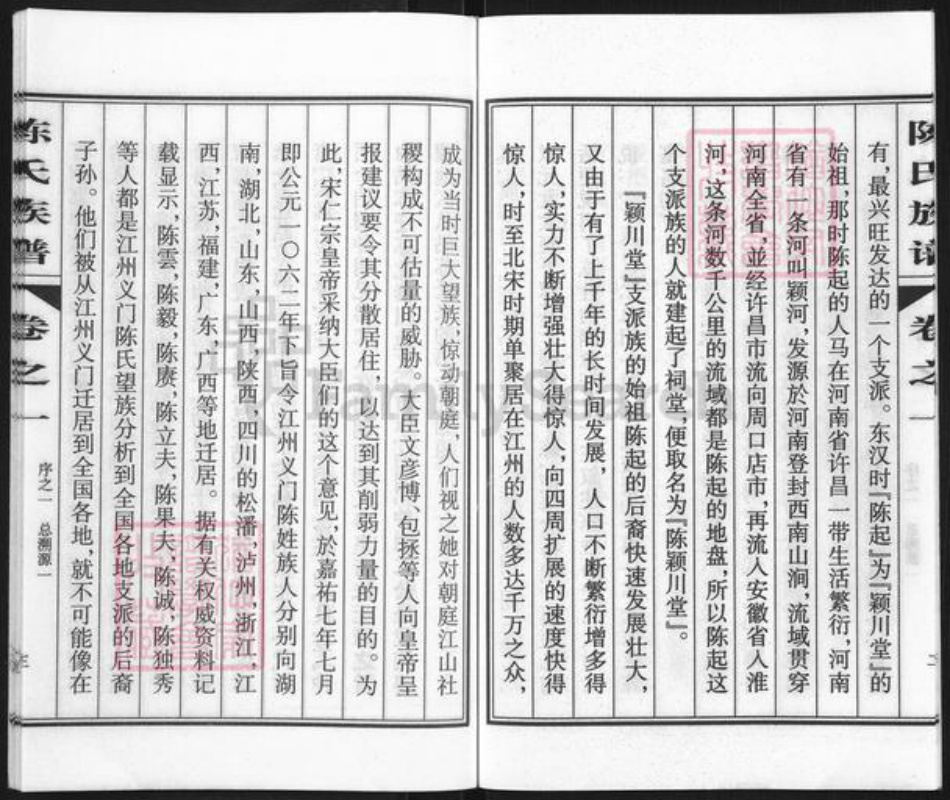 陈氏族谱 卷之一
有,最兴旺发达的一个支派。东汉时『陈起』为『颖川堂』的
始祖,那时陈起的人马在河南省许昌一带生活繁衍,河南
省有一条河叫颖河,发源於河南登封西南山涧,流域贯穿
河南全省,並经许昌市流向周口店市,再流人安徽省人淮
河,这条河数千公里的流域都是陈起的地盘,所以陈起这
个支派族的人就建起了祠堂,便取名为『陈颖川堂』。
『颖川堂』支派族的始祖陈起的后裔快速发展壮大,
又由于有了上千年的长时间发展,人口不断繁衍增多得
惊人,实力不断增强壮大得惊人,向四周扩展的速度快得
惊人,时至北宋时期单聚居在江州的人数多达千万之众,
成为当时巨大望族,惊动朝庭,人们视之她对朝庭江山社
稷构成不可估量的威胁。大臣文彦博、包拯等人向皇帝呈
报建议要令其分散居住,以达到其削弱力量的目的。为
此,宋仁宗皇帝采纳大臣们的这个意见,於嘉祐七年七月
即公元一〇六二年下旨令江州义门陈姓族人分别向湖
南,湖北,山东,山西,陕西,四川的松潘,泸州,浙江,江
西,江苏,福建,广东,广西等地迁居。据有关权威资料记
载显示,陈雲,陈毅,陈赓,陈立夫,陈果夫,陈诚,陈独秀
等人都是江州义门陈氏望族分析到全国各地支派的后裔
子孙。他们被从江州义门迁居到全国各地,就不可能像在
陈氏族谱 卷之一 序之一 总溯源一 三
FamilySearch